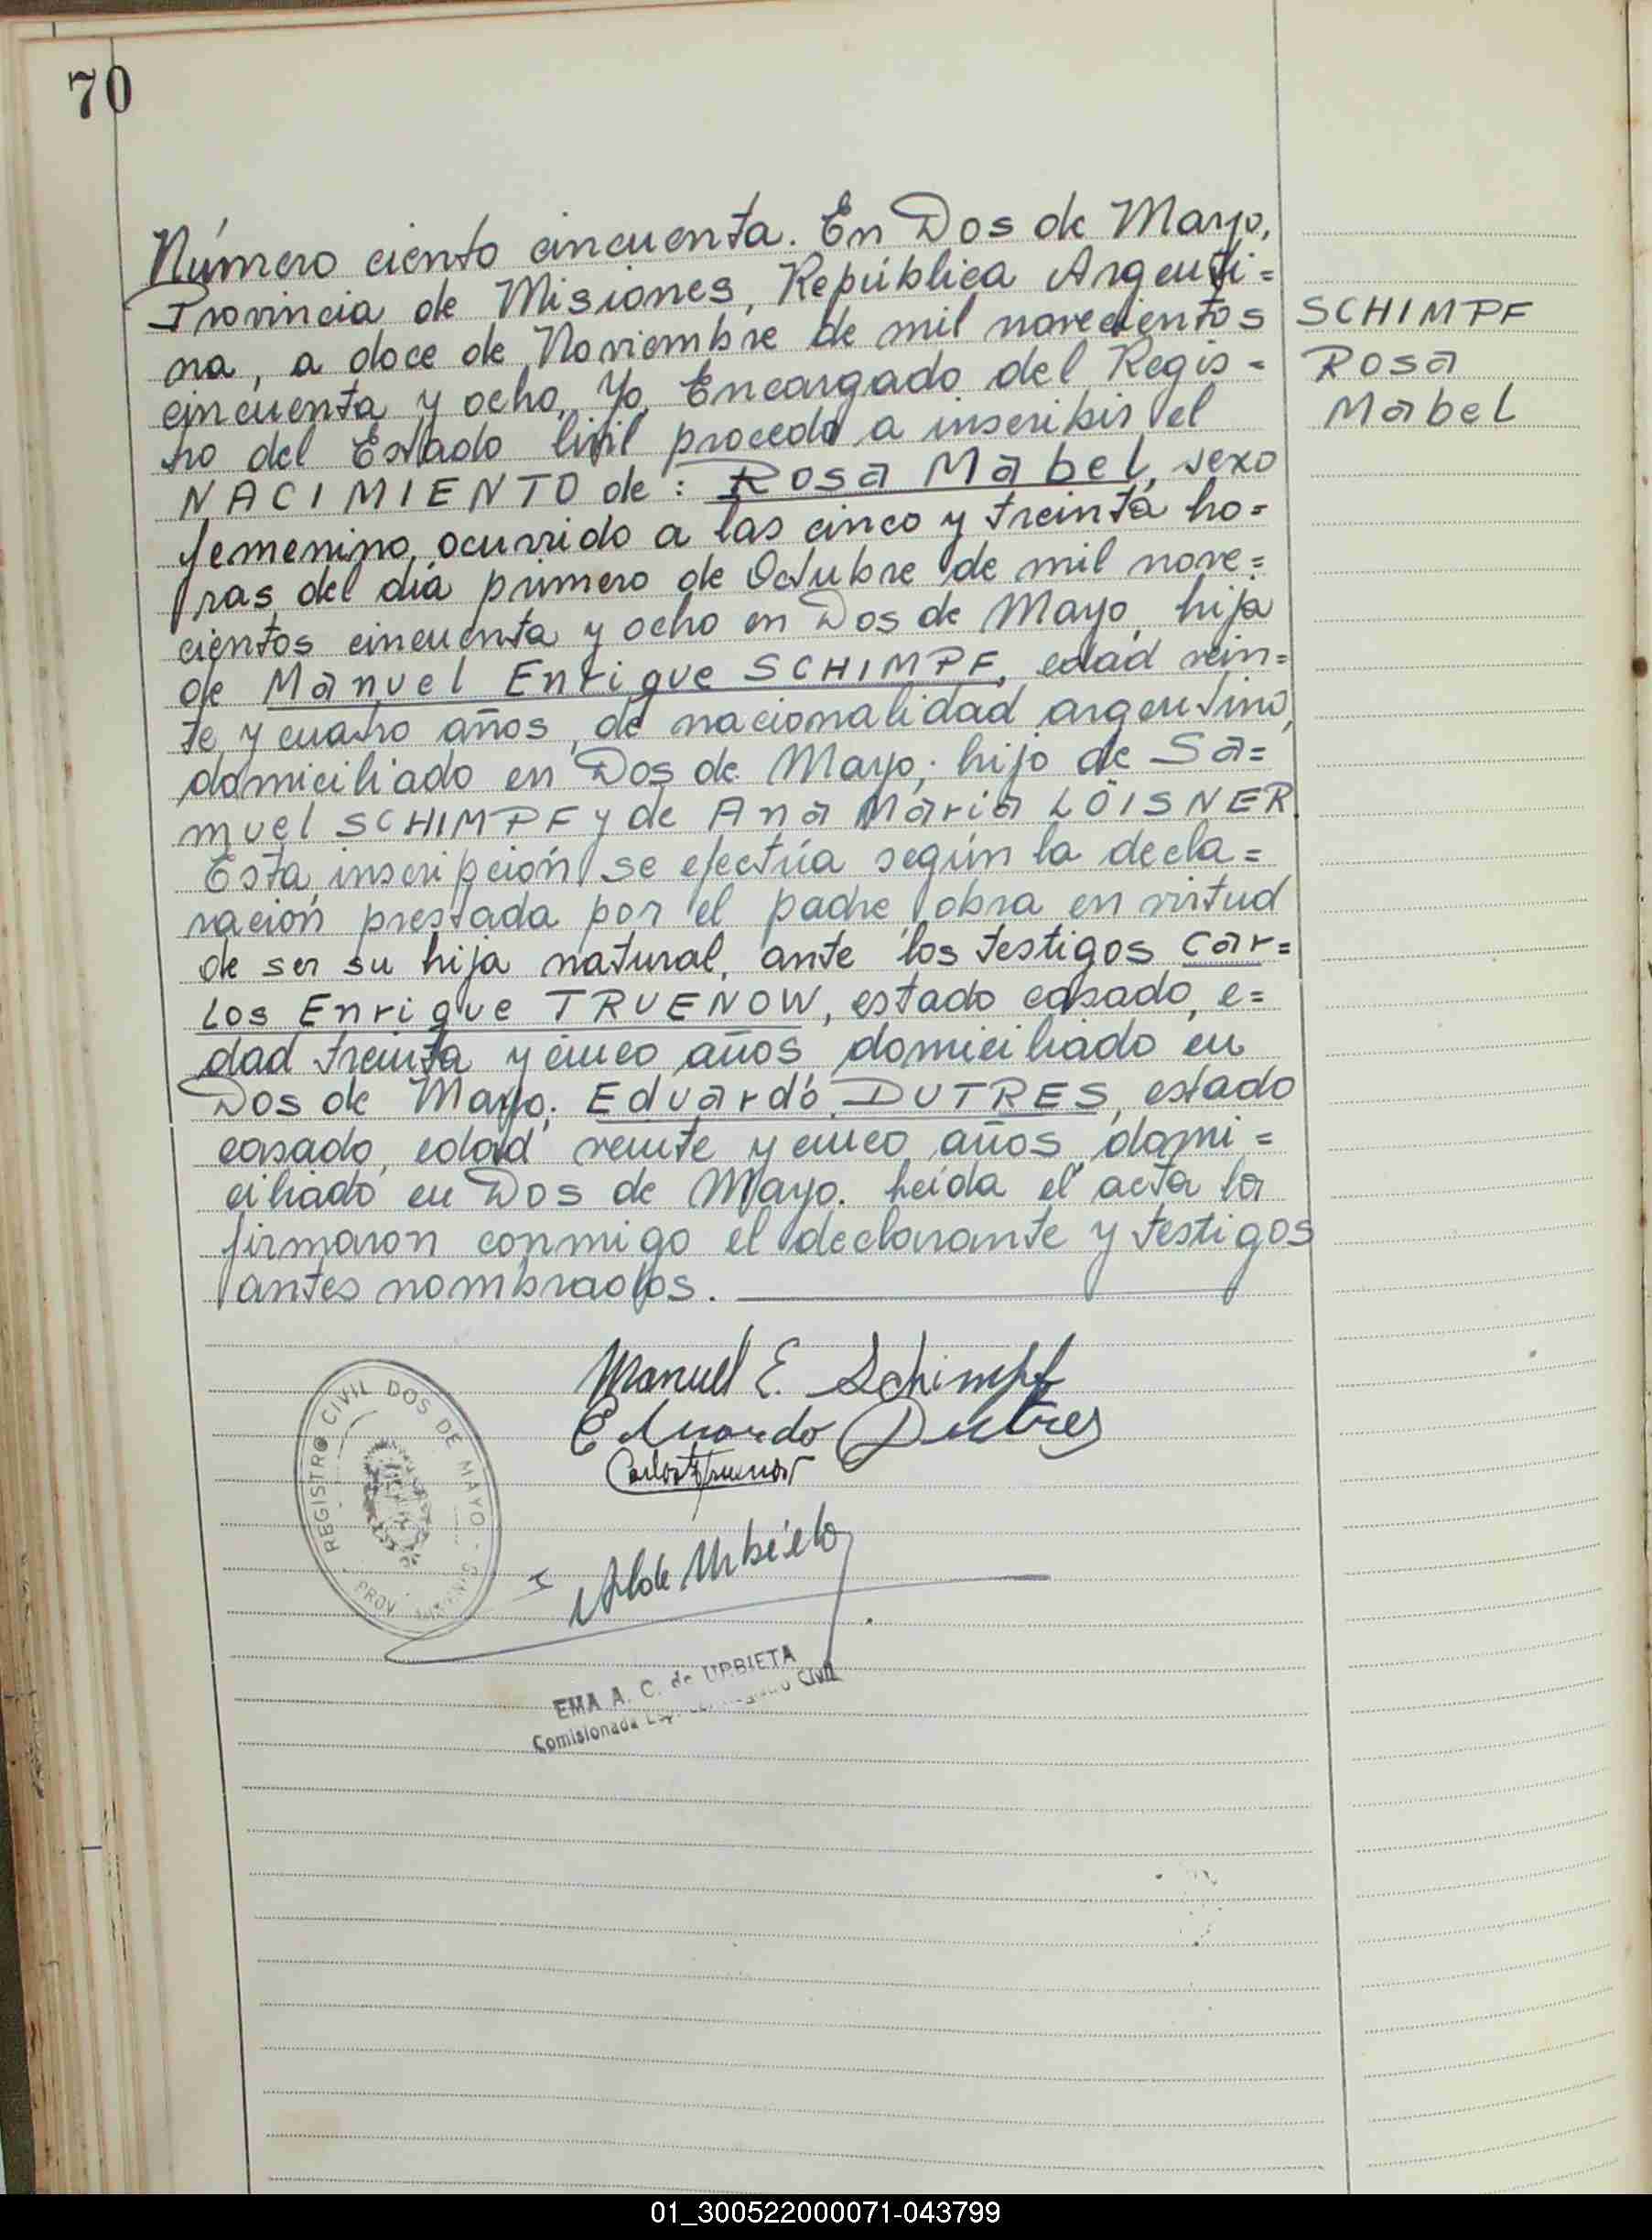 70
Número ciento cincuenta. En Dos de Mayo,
Provincia de Misiones, República Argenti=
na, a doce de Noviembre de mil novecientos
cincuenta y ocho, Yo, Encargado del Regis=
tro del Estado Civil procedo a inscribir el
NACIMIENTO de: Rosa Mabel, sexo
femenino, ocurrido a las cinco y treinta ho=
ras del día primero de Octubre de mil nove=
cientos cincuenta y ocho en Dos de Mayo, hija
de Manuel Enrique SCHIMPF, edad vein=
te y cuatro años, de nacionalidad argentino,
domiciliado en Dos de Mayo; hijo de Sa=
muel SCHIMPF y de Ana María LÖISNER.
Esta inscripción se efectúa según la decla=
ración prestada por el padre, obra en virtud
de ser su hija natural, ante los testigos Car=
los Enrique TRUENOW, estado casado, e=
dad treinta y cinco años, domiciliado en
Dos de Mayo; Eduardo DUTRES, estado
casado, edad veinte y cinco años, domi=
ciliado en Dos de Mayo. Leída el acta la
firmaron conmigo el declarante y testigos
antes nombrados.
SCHIMPF
Rosa
Mabel
Manuel E. Schimpf
Eduardo Dutres
Carlos E Truenow
REGISTRO CIVIL DOS DE MAYO - PROV. MISIONES
de Urbieta
EMA A. C. de URBIETA
Comisionada Civil
01_300522000071-043799